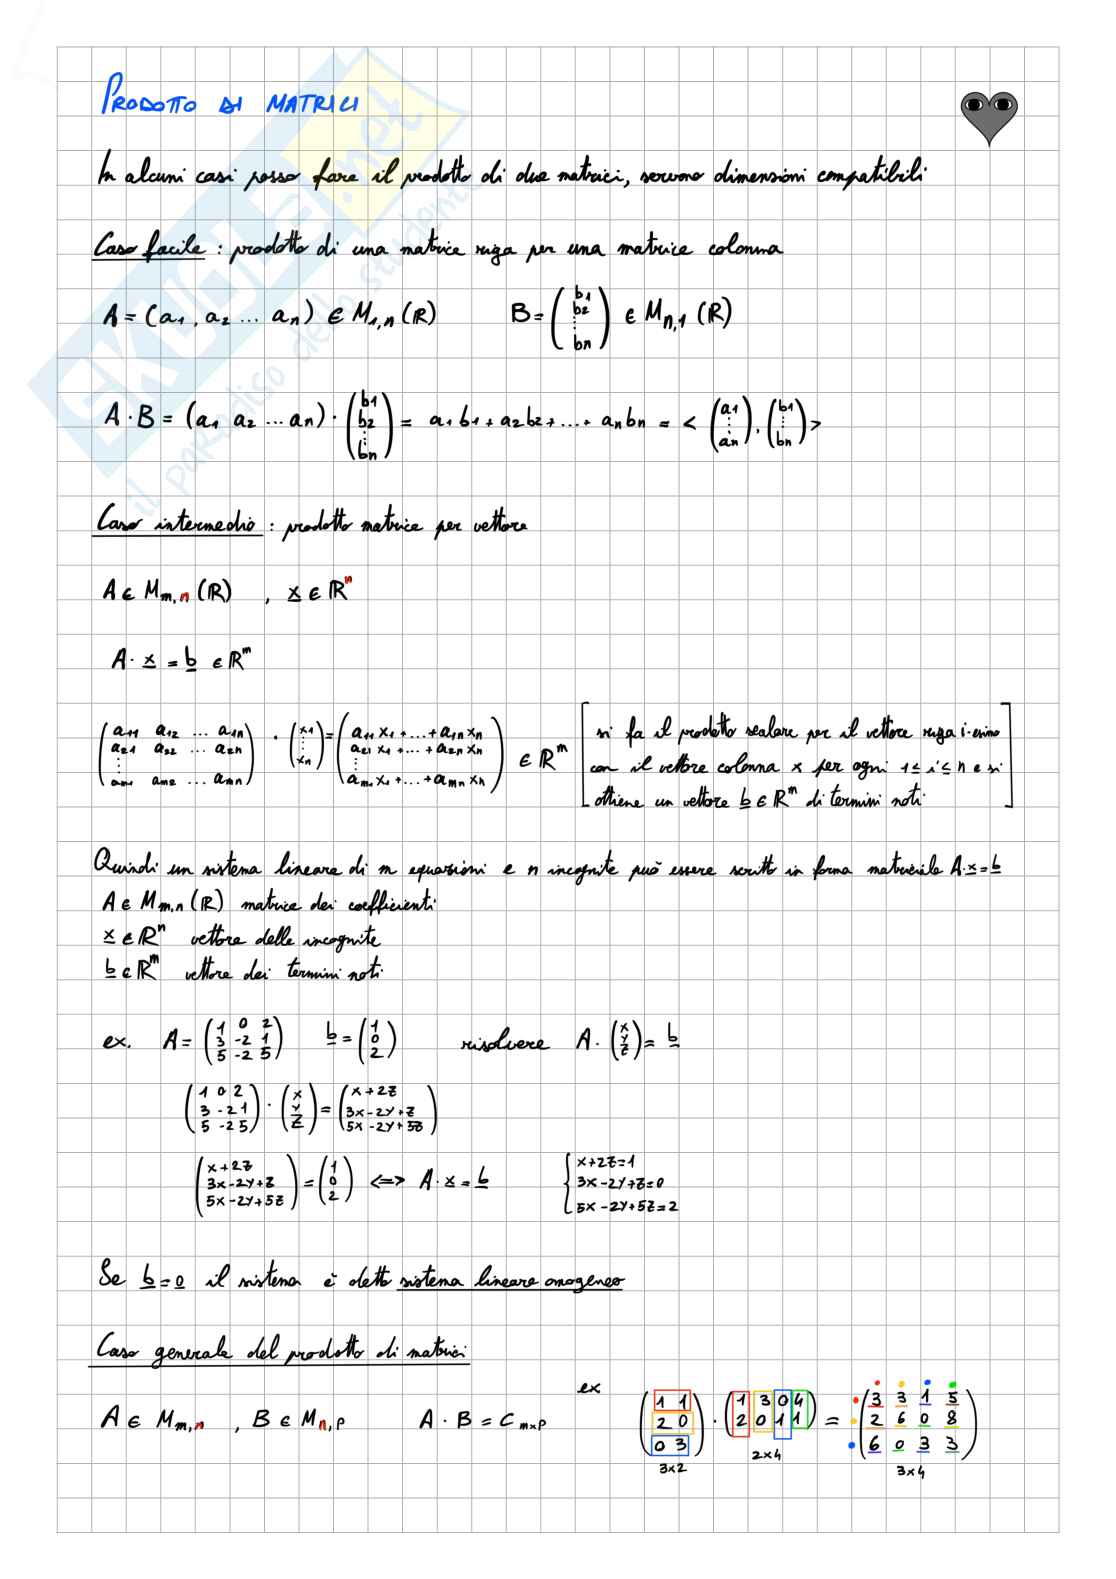 PRODOTTO DI MATRICI
In alcuni casi posso fare il prodotto di due matrici, servono dimensioni compatibili
Caso facile : prodotto di una matrice riga per una matrice colonna
A = (a1, a2 ... an) ∈ M1,n (ℝ) B = (b1 b2 ⋮ bn) ∈ Mn,1 (ℝ)
A · B = (a1 a2 ... an) · (b1 b2 ⋮ bn) = a1b1 + a2b2 + ... + anbn = < (a1 ⋮ an), (b1 ⋮ bn) >
Caso intermedio : prodotto matrice per vettore
A ∈ Mm,n (ℝ) , x ∈ ℝⁿ
A · x = b ∈ ℝᵐ
(a11 a12 ... a1n · (x1 = (a11 x1 + ... + a1n xn
a21 a22 ... a2n ⋮ a21 x1 + ... + a2n xn
⋮ xn) ⋮ ∈ ℝᵐ
am1 am2 ... amn) am1 x1 + ... + amn xn)
[si fa il prodotto scalare per il vettore riga i-esimo
con il vettore colonna x per ogni 1 ≤ i ≤ n e si
ottiene un vettore b ∈ ℝᵐ di termini noti]
Quindi un sistema lineare di m equazioni e n incognite può essere scritto in forma matriciale A·x = b
A ∈ Mm,n (ℝ) matrice dei coefficienti
x ∈ ℝⁿ vettore delle incognite
b ∈ ℝᵐ vettore dei termini noti
ex. A = (1 0 2 b = (1 risolvere A · (x = b
3 -2 1 0 y
5 -2 5) 2) z)
(1 0 2 · (x = (x + 2z
3 -2 1 y 3x - 2y + z
5 -2 5) z) 5x - 2y + 5z)
(x + 2z = (1 <=> A · x = b { x + 2z = 1
3x - 2y + z 0 3x - 2y + z = 0
5x - 2y + 5z) 2) 5x - 2y + 5z = 2
Se b = 0 il sistema è detto sistema lineare omogeneo
Caso generale del prodotto di matrici
A ∈ Mm,n , B ∈ Mn,p A · B = Cm×p
ex
(1 1 · (1 3 0 4 = (3 3 1 5
2 0 2 0 1 1) 2 6 0 8
0 3) 6 0 3 3)
3×2 2×4 3×4
SKUOLA.net
il paradiso dello studente